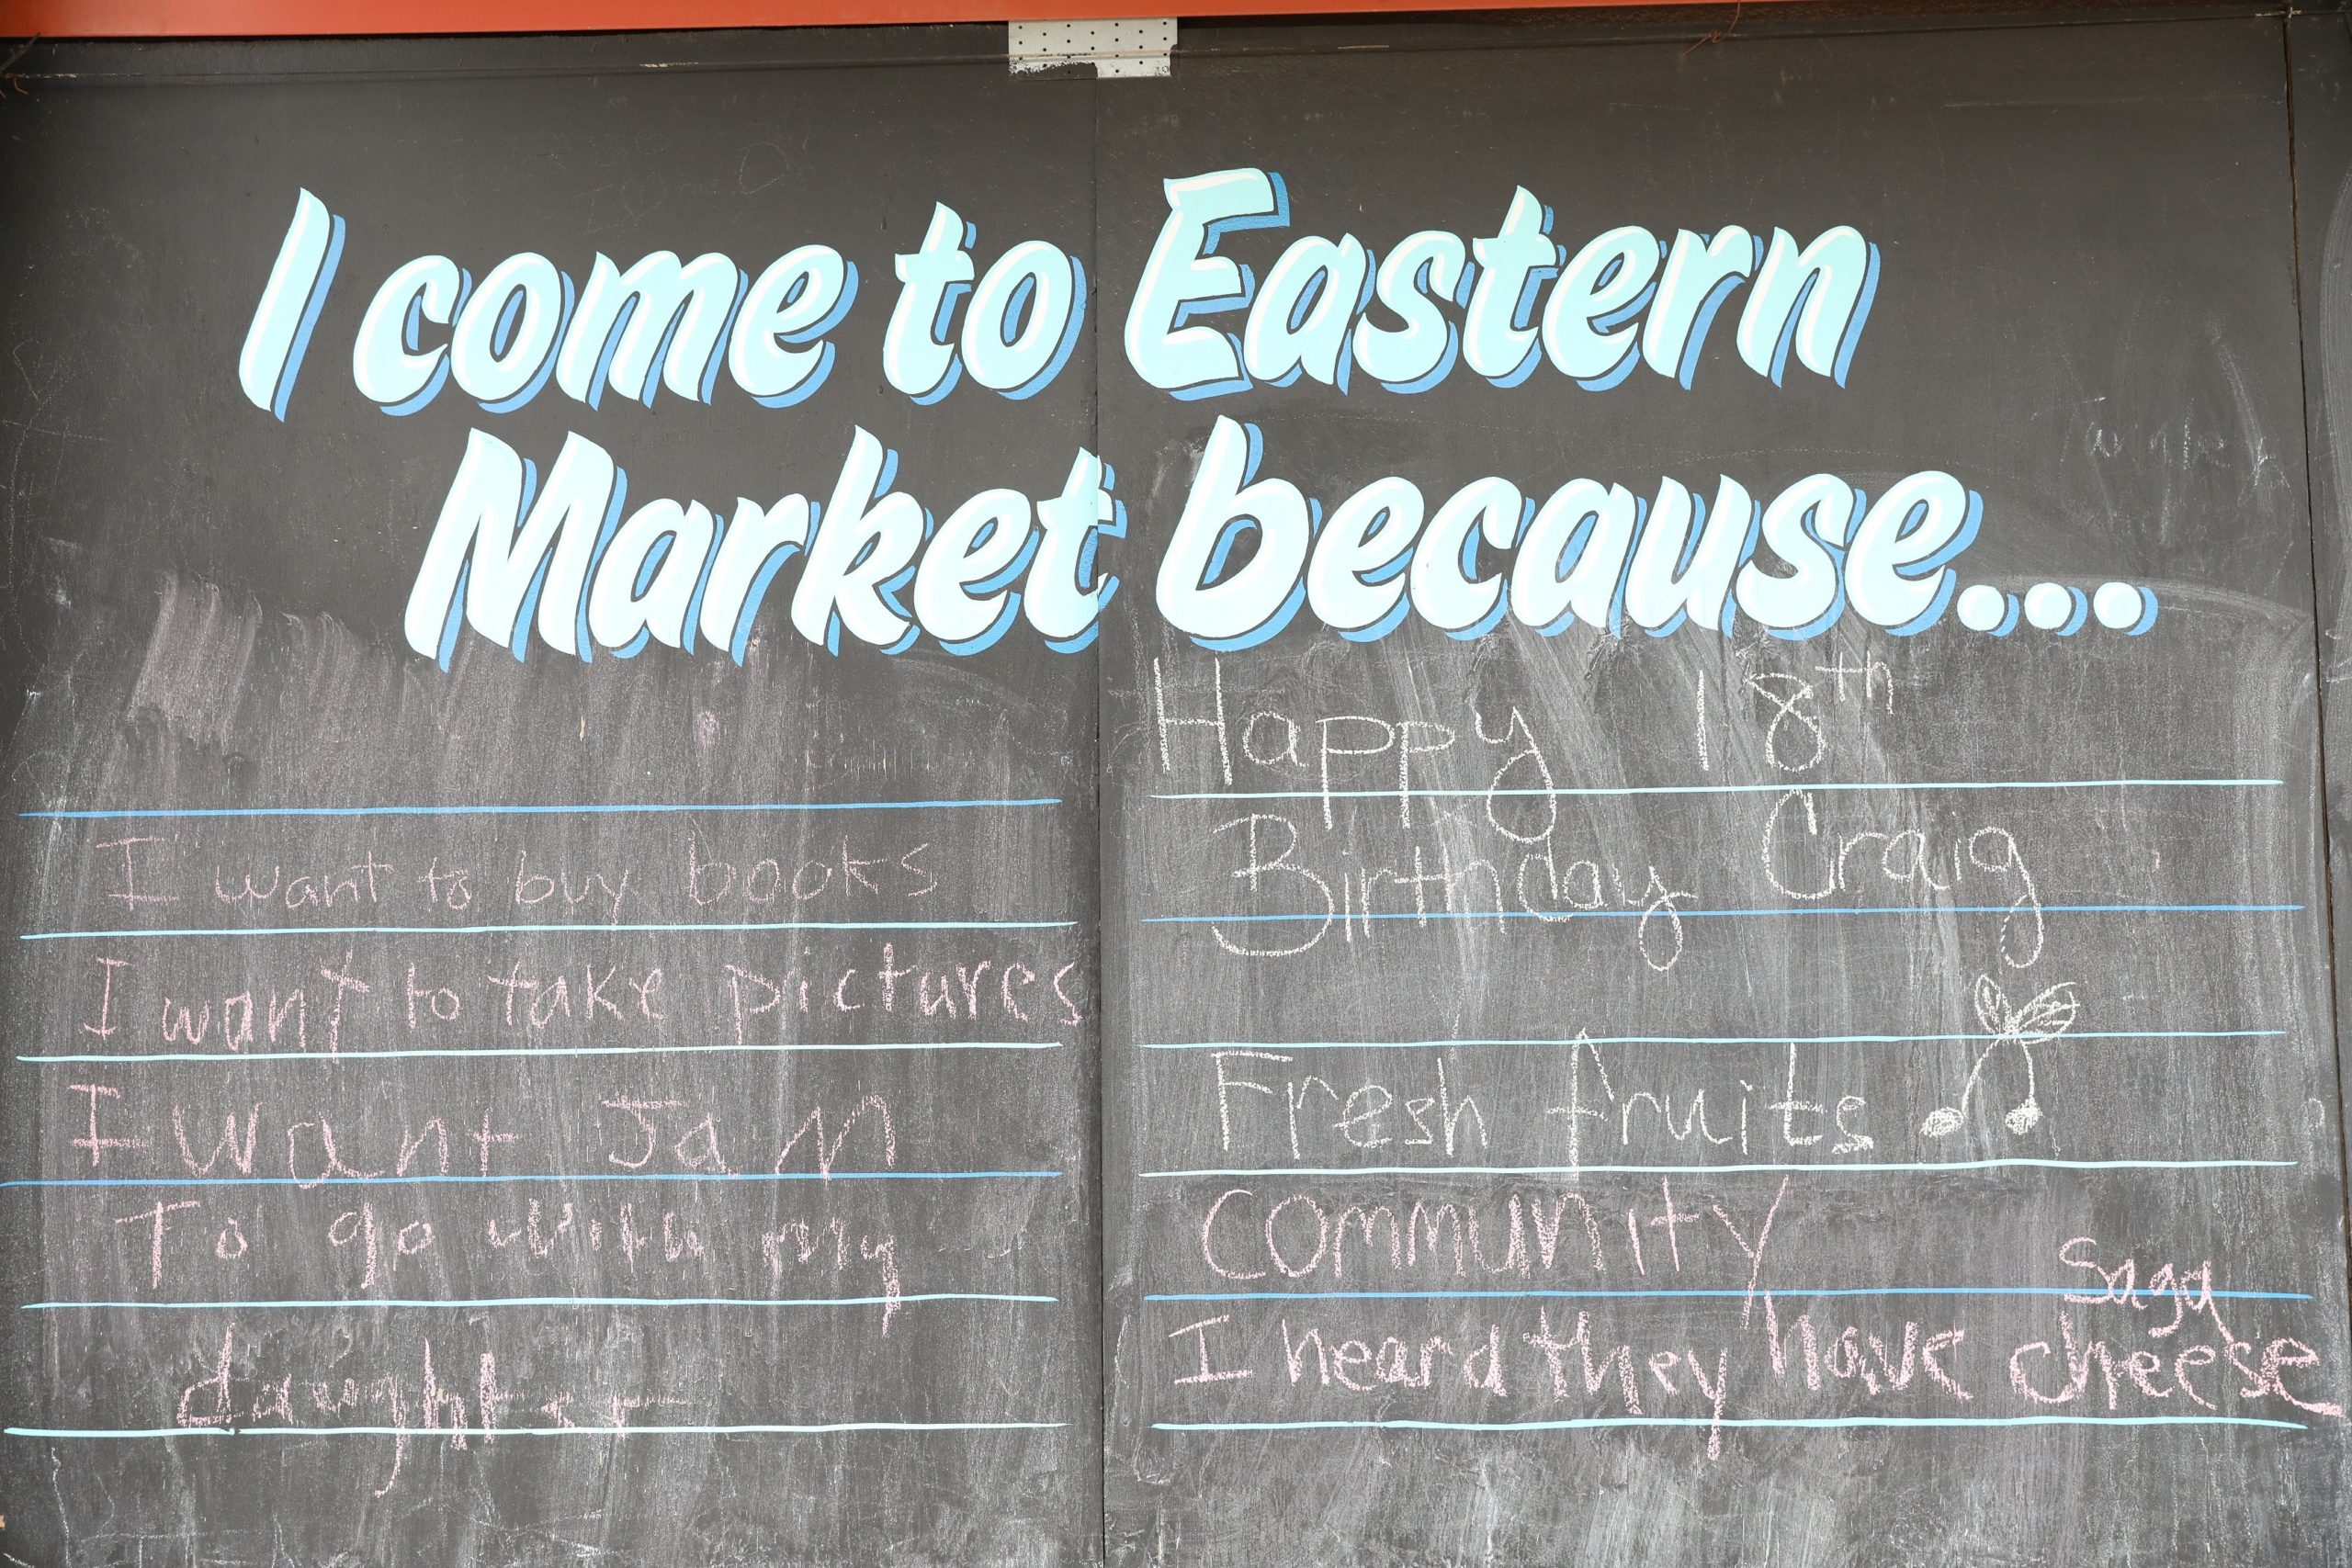 I come to Eastern
Market because...
I want to buy books
I want to take pictures
I want Jam
To go with my
daughter
Happy 18th
Birthday Craig
Fresh fruits
Community
Saga
I heard they have cheese